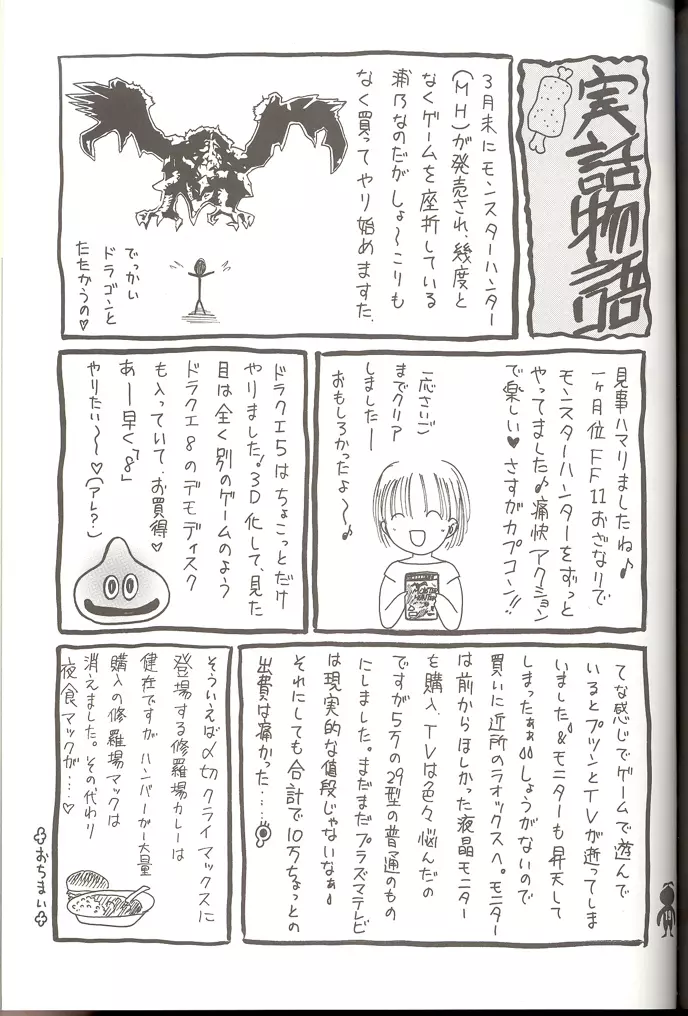 実話物語
3月末にモンスターハンター
(MH)が発売され、幾度と
なくゲームを座折している
浦乃なのだがしょ～こりも
なく買ってやり始めますた.
でっかい
ドラゴンと
たたかうの♥
見事ハマりましたね♪
一ヶ月位FF11おざなりで
モンスターハンターをずっと
やってました♪痛快アクション
で楽しい♥さすがカプコン!!
一応さいご
までクリア
しましたー
おもしろかったよ～♪
ドラクエ5はちょこっとだけ
やりました!3D化して、見た
目は全く別のゲームのよう
ドラクエ8のデモディスク
も入っていて、お買得♥
あー早く「8」
やりたい～♥(アレ?)
てな感じでゲームで遊んで
いるとプツンとTVが逝ってしま
いました。&モニターも昇天して
しまったぁぁ しょうがないので
買いに近所のラオックスへ。モニター
は前からほしかった液晶モニター
を購入、TVは色々悩んだの
ですが5万の29型の普通のもの
にしました。まだまだプラズマテレビ
は現実的な値段じゃないなぁ
それにしても合計で10万ちょっとの
出費は痛かった……
そういえば〆切クライマックスに
登場する修羅場カレーは
健在ですがハンバーガー大量
購入の修羅場マックは
消えました。その代わり
夜食マックが……♥
おちまい
19